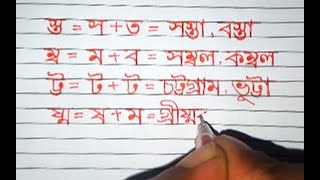 স্ত = স + ত = সস্তা, বস্তা
ম্ব = ম + ব = সম্বল, কম্বল
ট্ট = ট + ট = চট্টগ্রাম, ভুট্টা
ষ্ম = ষ + ম = গ্রীষ্ম